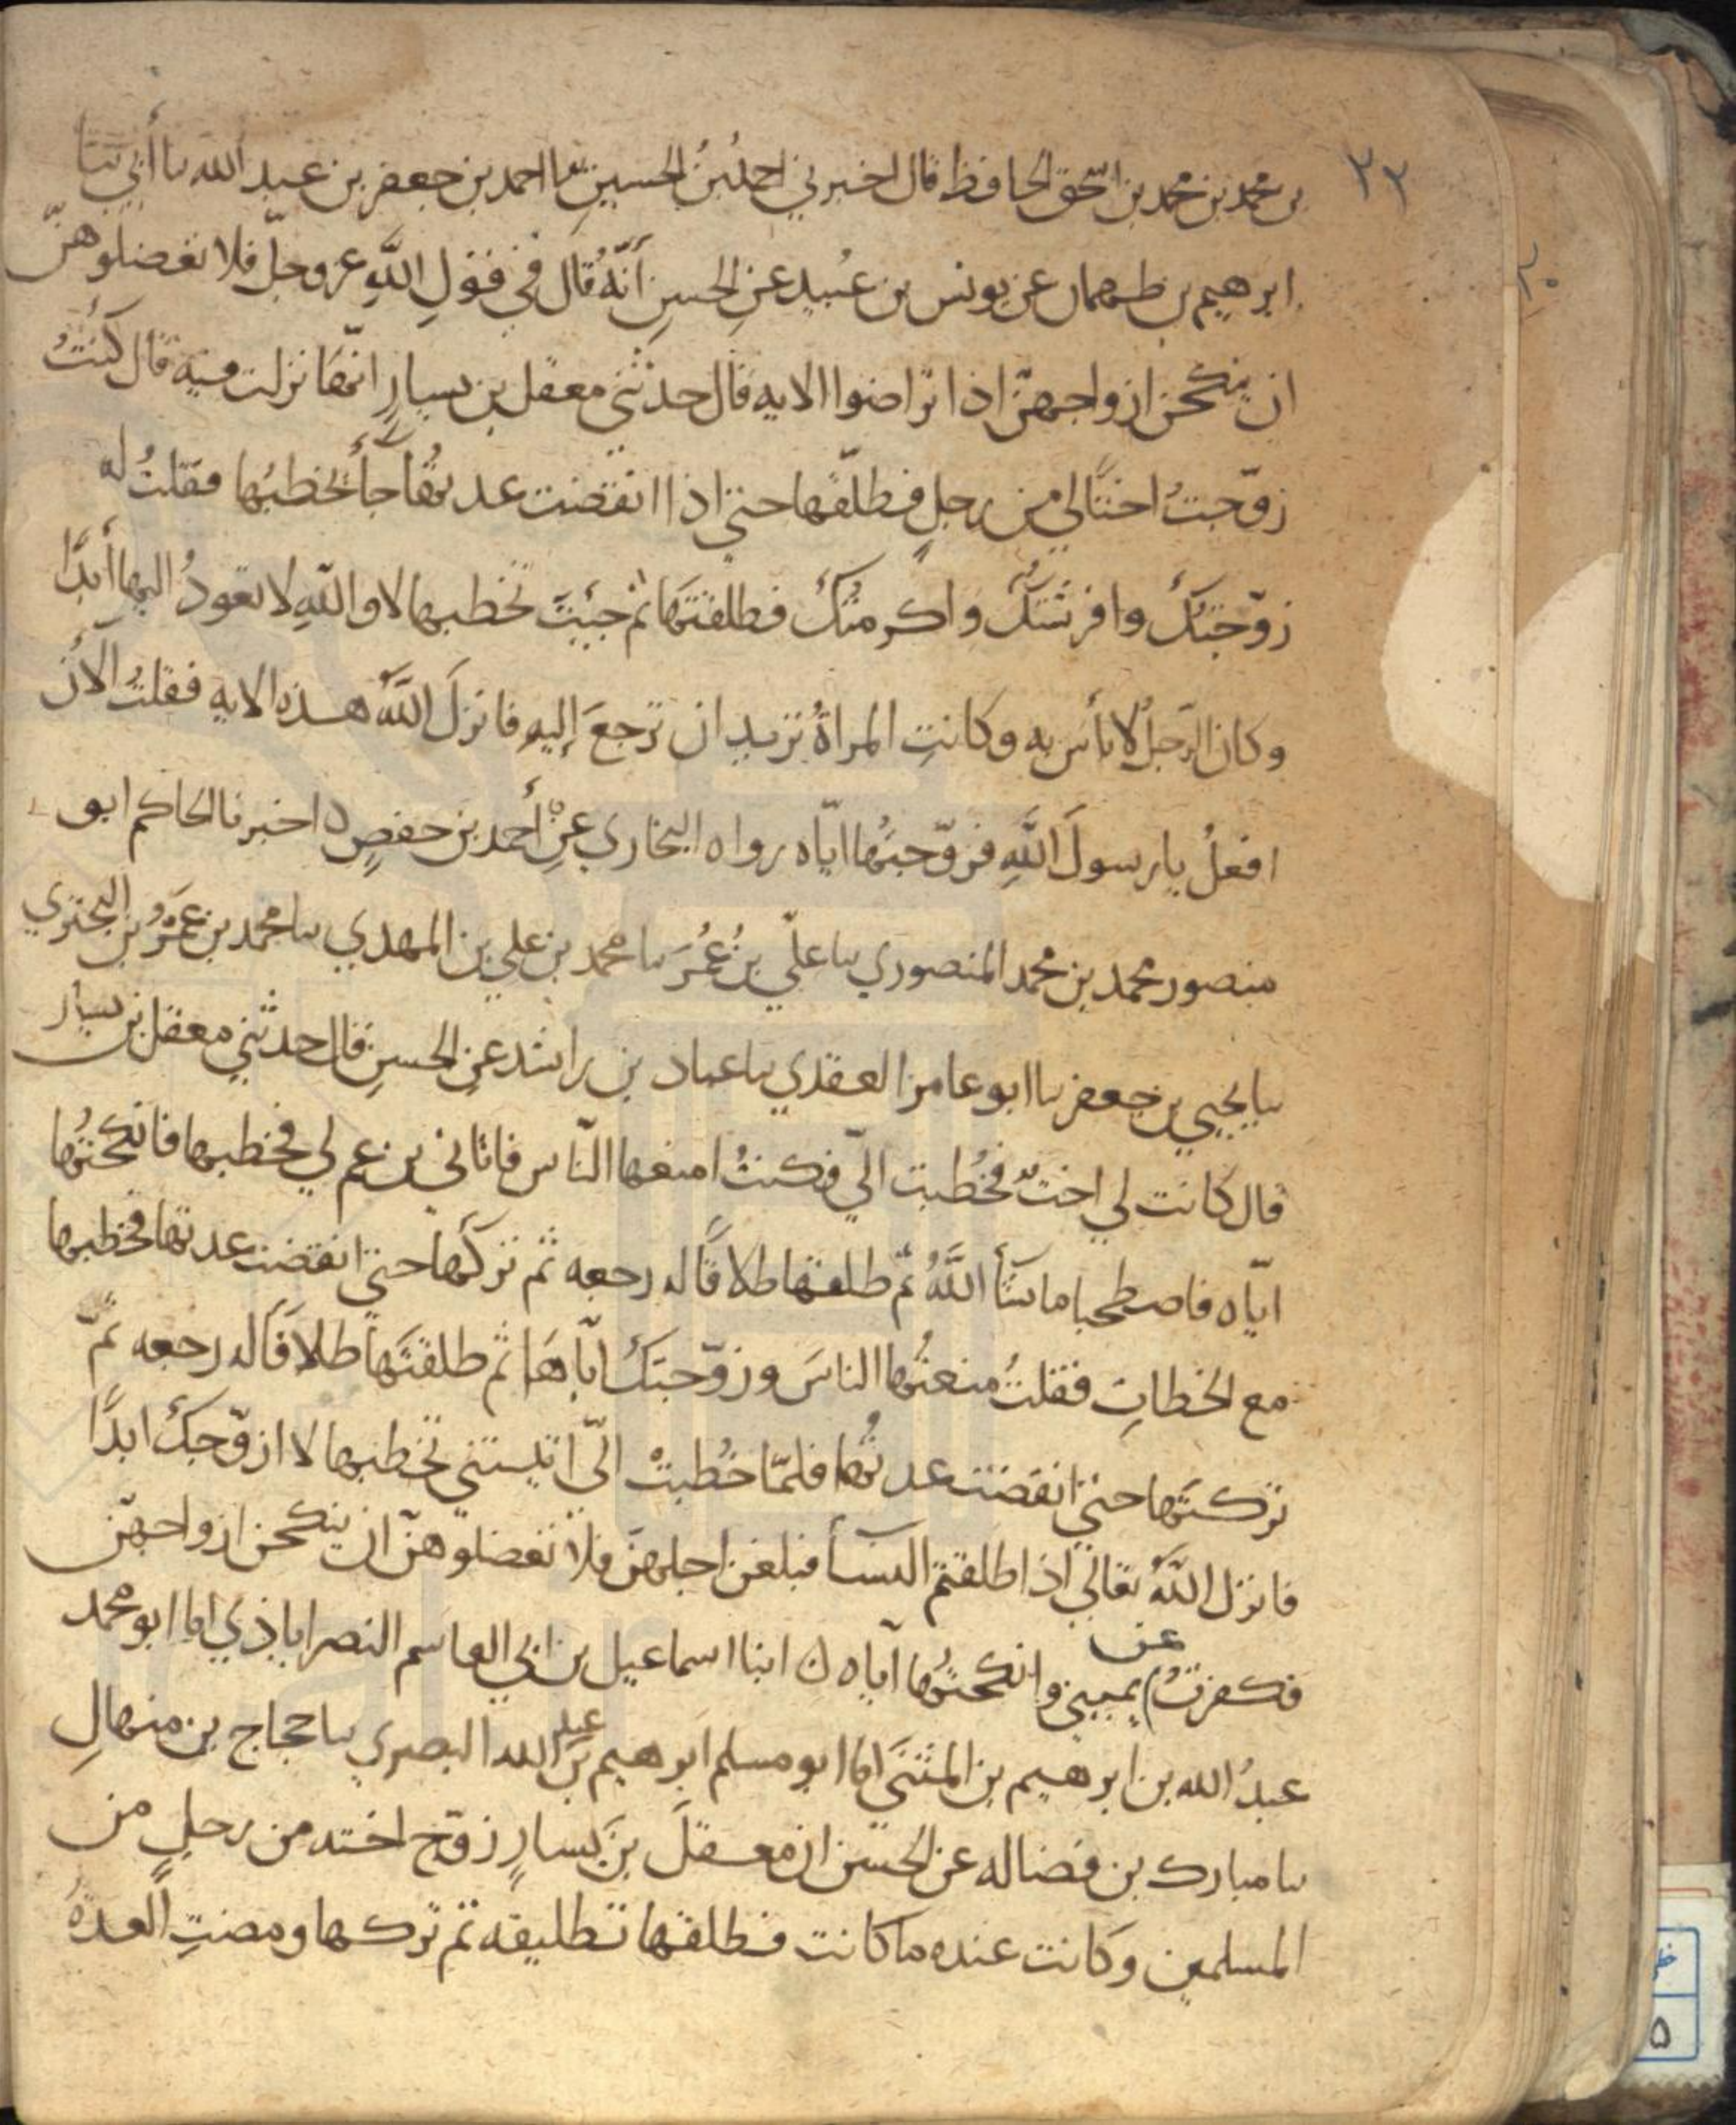 ٢٢
بن محمد بن محمد بن اسحق الحافظ قال اخبرني احمدُ بنُ الحسينِ ثنا احمد بن جعفر بن عبد الله نا أبي ثنا
ابرهيم بن طهمان عن يونس بن عُبيد عنِ الحسنِ أنّهُ قال في قولِ اللَّهِ عز وجلّ فلا تعضلوهنّ
ان ينكحن ازواجهنّ اذا تراضوا الايه قال حدثني معقل بن يسارٍ انّها نزلت فيه قال كنتُ
زوّجتُ اختًا لي من رجلٍ فطلّقها حتى اذا انقضت عدتُها جآءَ يخطبُها فقلتُ له
زوّجتكَ وافرشتكَ واكرمتكَ فطلقتَها ثم جئِتَ تخطبها لا واللَّهِ لا تعودُ اليها أبدًا
وكان الرّجلُ لا بأس به وكانتِ المراةُ تريد ان ترجعَ إليهِ فانزلَ اللَّهُ هذه الايه فقلتُ الآنَ
افعلُ يا رسولَ اللَّهِ فزوّجتُها ايّاه رواه البخاري عن أحمد بن حفصٍ ٥ اخبرنا الحاكم ابو
منصور محمد بن محمد المنصوري نا علّي بنُ عُمَرَ نا محمد بن علي بن المهدي نا محمد بن عَمرو بن البختري
نا يحيي بن جعفر نا ابو عامر العقدي نا عباد بن راشد عنِ الحسنِ قال حدثني معقل بن يسار
قال كانت لي اختٌ فخُطبت اليّ فكنتُ امنعها النّاس فاتاني بن عم لي فخطبها فانكحتُها
ايّاه فاصطحبا ما شآءَ اللَّهُ ثمّ طلقها طلاقًا له رجعه ثم تركها حتي انقضت عدتها فخطبها
مع الخطابِ فقلتُ منعتُها الناسَ وزوّجتكَ ايّاهَا ثم طلقتَها طلاقًا له رجعه ثمّ
تركتَها حتي انقضت عدتُها فلمّا خُطبتْ اليّ اتيتني تخطبها لا ازوّجكَ ابدًا
فانزل اللَّهُ تعالي اذا طلقتم النسآءَ فبلغن اجلهنّ فلا تعضلوهنّ ان ينكحن ازواجهنّ
فكفرتُ عن يميني وانكحتُها اياه ٥ انبا اسماعيل بن ابي القاسم النصراباذي انا ابو محمد
عبدُ الله بن ابرهيم بن المثنَي انا ابو مسلم ابرهيم بن عبد الله البصري نا حجاج بن منهالٍ
نا مبارك بن فضاله عن الحسن ان معقلَ بنَ يسارٍ زوّج اخته من رجلٍ من
المسلمين وكانت عنده ما كانت فطلقها تطليقه ثم تركها ومضتِ العدهُ